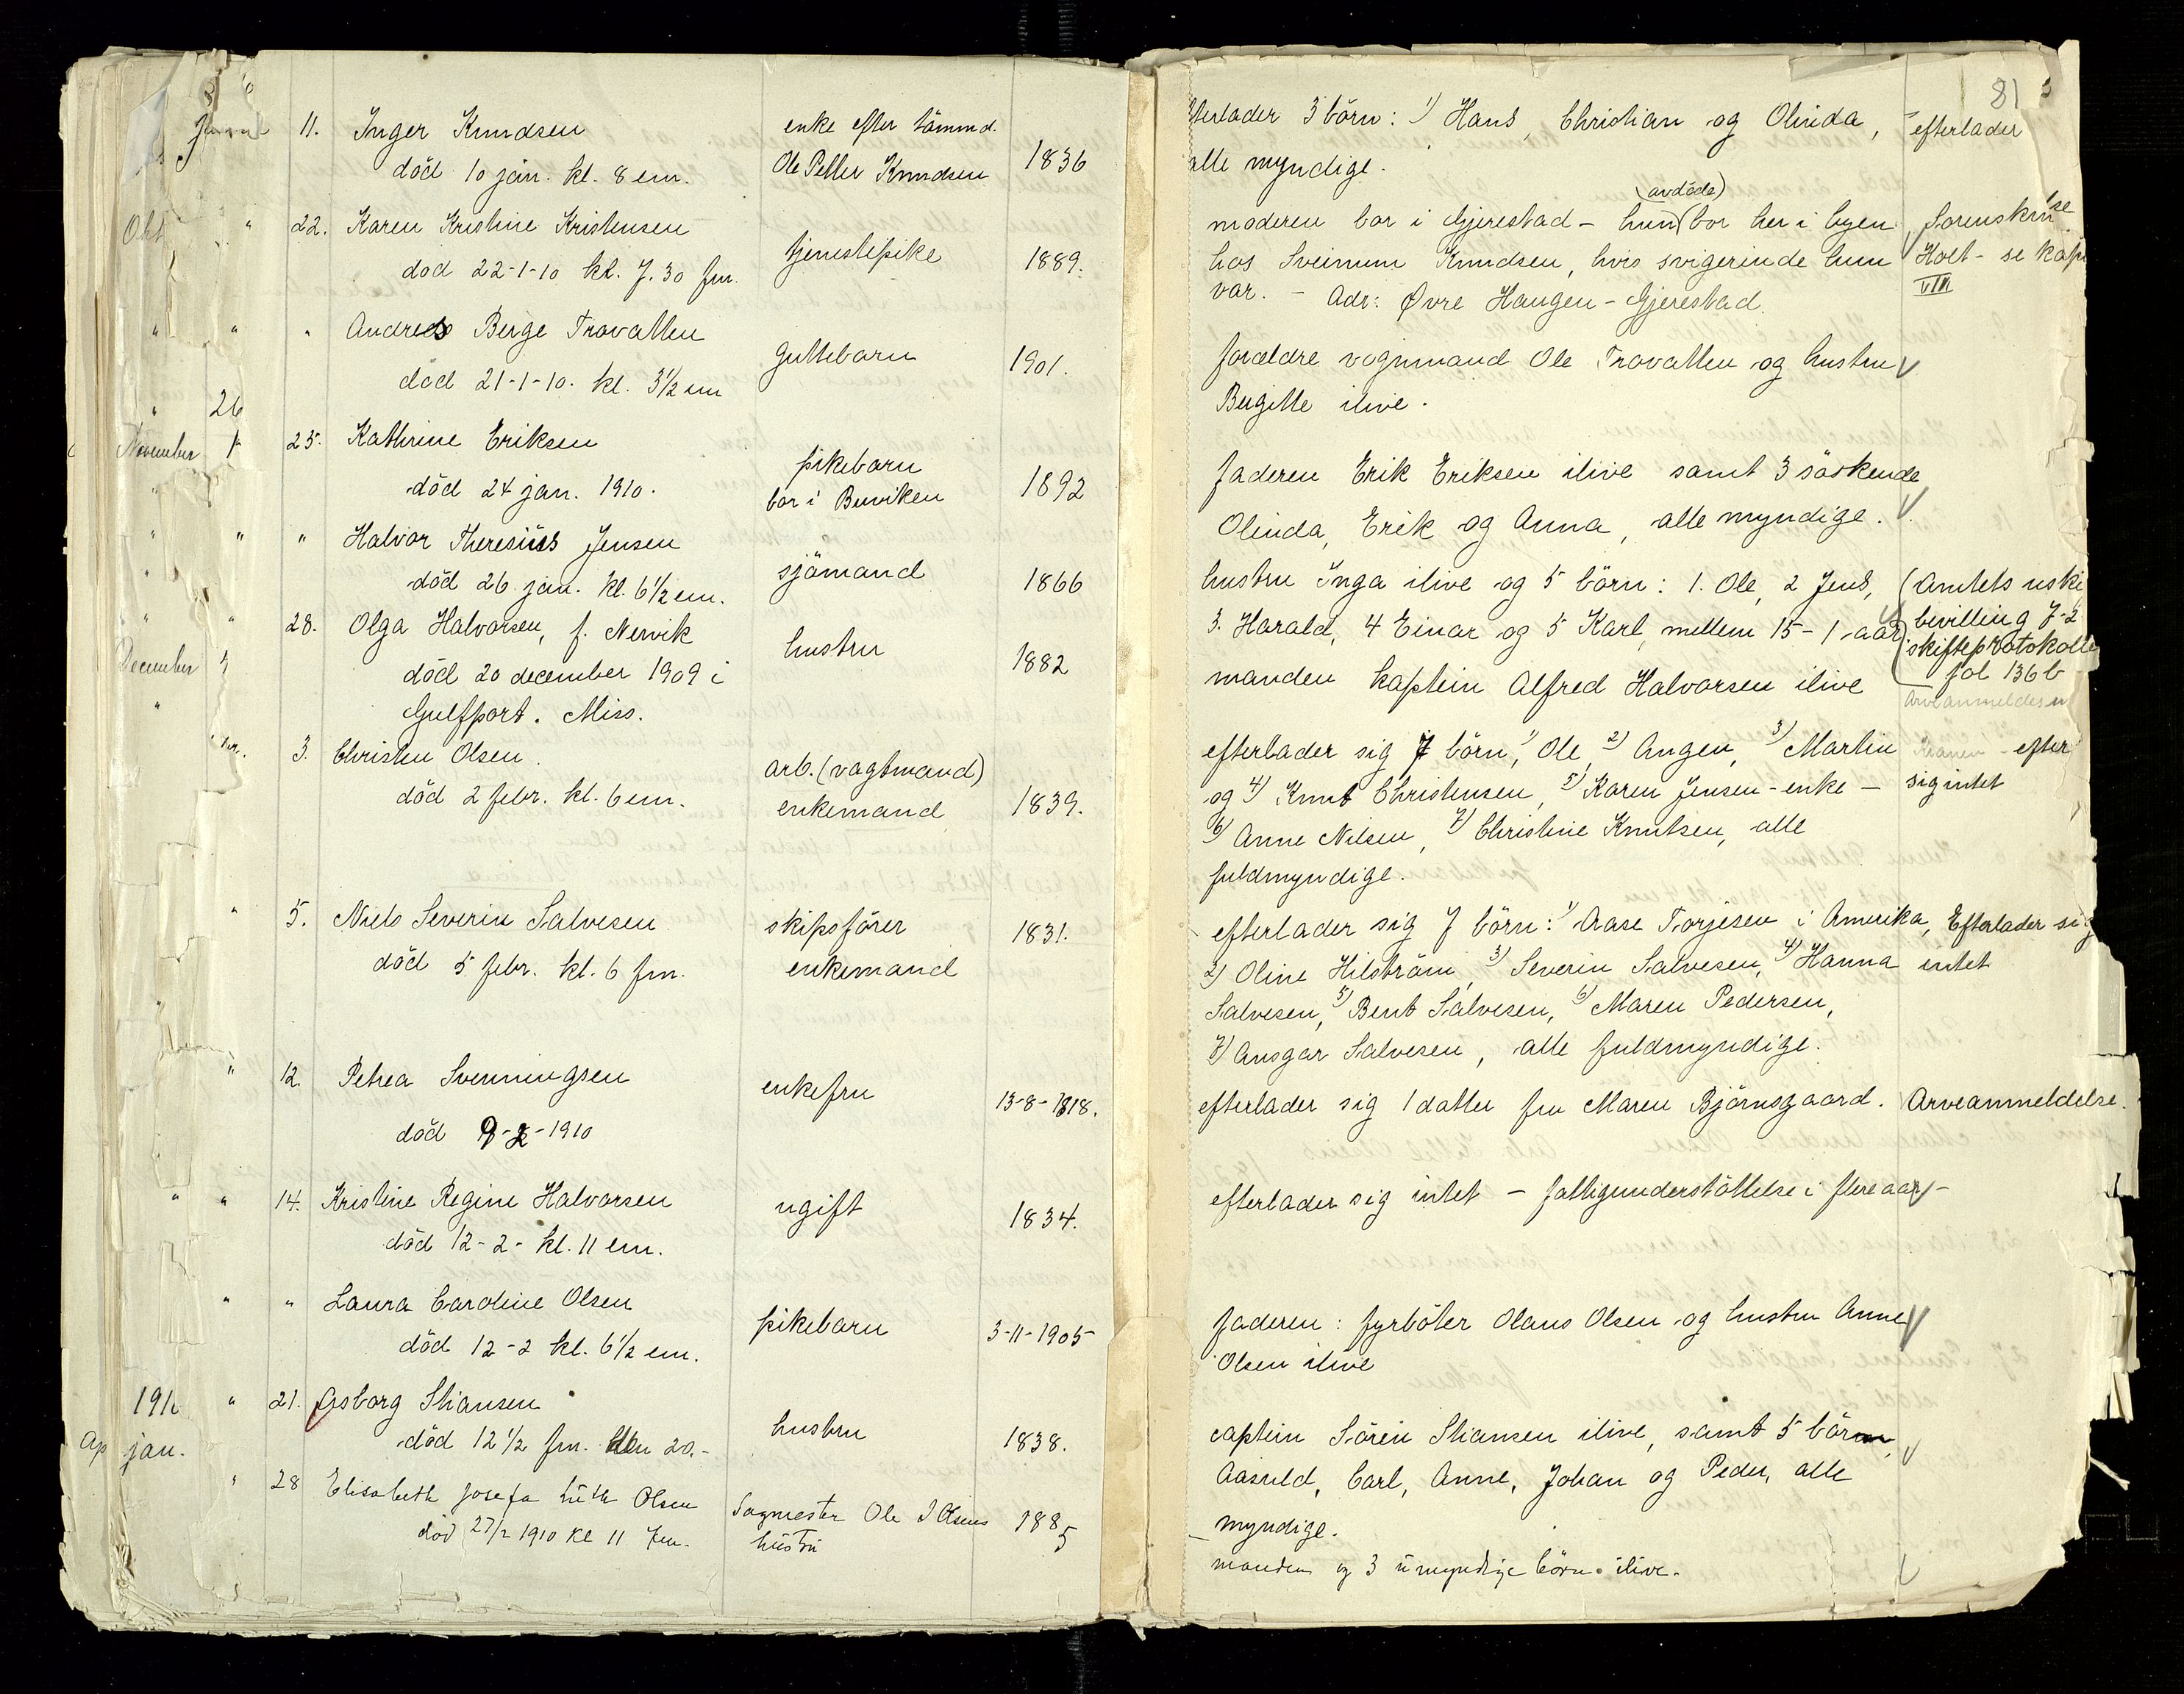 81
11. Inger Knudsen enke efter tömmd. efterlader 3 börn: 1) Hans, Christian og Olinda, efterlader
död 10 jan. kl. 8 em. Ole Petter Knudsen 1836 alle myndige.
(avdöde)
Okt " 22. Karen Kristine Kristensen moderen bor i Gjerestad - hun bor her i byen
död 22-1-10 kl. 7.30 fm. tjenestepike 1889. hos Sveinum Knudsen, hvis svigerinde hun Holt - se
var. - Adr: Øvre Haugen - Gjerestad. VIII
" " " Andreas Berge Trovatten guttebarn 1901. forældre vognmand Ole Trovatten og hustru
död 21-1-10. kl. 3½ em Birgitte ilive.
" 26
November 1 25. Kathrine Eriksen pikebarn faderen Erik Eriksen ilive samt 3 söskende
död 24 jan. 1910. bor i Buviken 1892 Olinda, Erik og Anna, alle myndige.
" " " Halvor Theresius Jensen sjömand hustru Inga ilive og 5 börn: 1. Ole, 2 Jens, (Amtets uski
död 26 jan. kl. 6½ em. 1866 3. Harald, 4 Einar og 5 Karl, mellem 15-1 aar bevilling 7-2
skifteprotokolle
fol 136 b
" " 28. Olga Halvorsen, f. Nervik hustru 1882 manden kaptein Alfred Halvorsen ilive
December död 20 december 1909 i Arveanmeldesn
Gulfport. Miss.
3. Christen Olsen arb. (vagtmand) efterlader sig 7 börn, 1) Ole, 2) Angen, 3) Martin efter
död 2 febr. kl. 6 em. enkemand 1839. og 4) Knut Christensen, 5) Karen Jensen - enke - sig intet
6) Anne Nilsen, 7) Christine Knutsen, alle
fuldmyndige.
" 5. Niels Severin Salvesen skipsförer 1831. efterlader sig 7 börn: 1) Aase Torjesen i Amerika, Efterlader sig
död 5 febr. kl. 6 fm. enkemand 2) Oline Hilström, 3) Severin Salvesen, 4) Hanna intet
Salvesen, 5) Bent Salvesen, 6) Maren Pedersen,
7) Ansgar Salvesen, alle fuldmyndige.
" 12. Petrea Svenningsen enkefru 13-8-1818. efterlader sig 1 datter fru Maren Björnsgaard. Arveanmeldelse.
död 9-2-1910
" " 14. Kristine Regine Halvorsen ugift 1834. efterlader sig intet - fattigunderstöttelse i flere aar -
död 12-2- kl. 11 em.
" " Laura Caroline Olsen pikebarn 3-11-1905 faderen: fyrböter Olaus Olsen og hustru Anne
död 12-2 kl. 6½ em. Olsen ilive
191 " 21. Asborg Stiansen hustru 1838. captein Sören Stiansen ilive, samt 5 börn,
jan. död 12½ fm. den 20.- Aasuld, Carl, Anne, Johan og Peder, alle
myndige.
" 28 Elisabeth Josefa Olsen Sagmester Ole J Olsens 1885
död 27/2 1910 Kl 11 fm. hustru manden og 3 umyndige börn ilive.